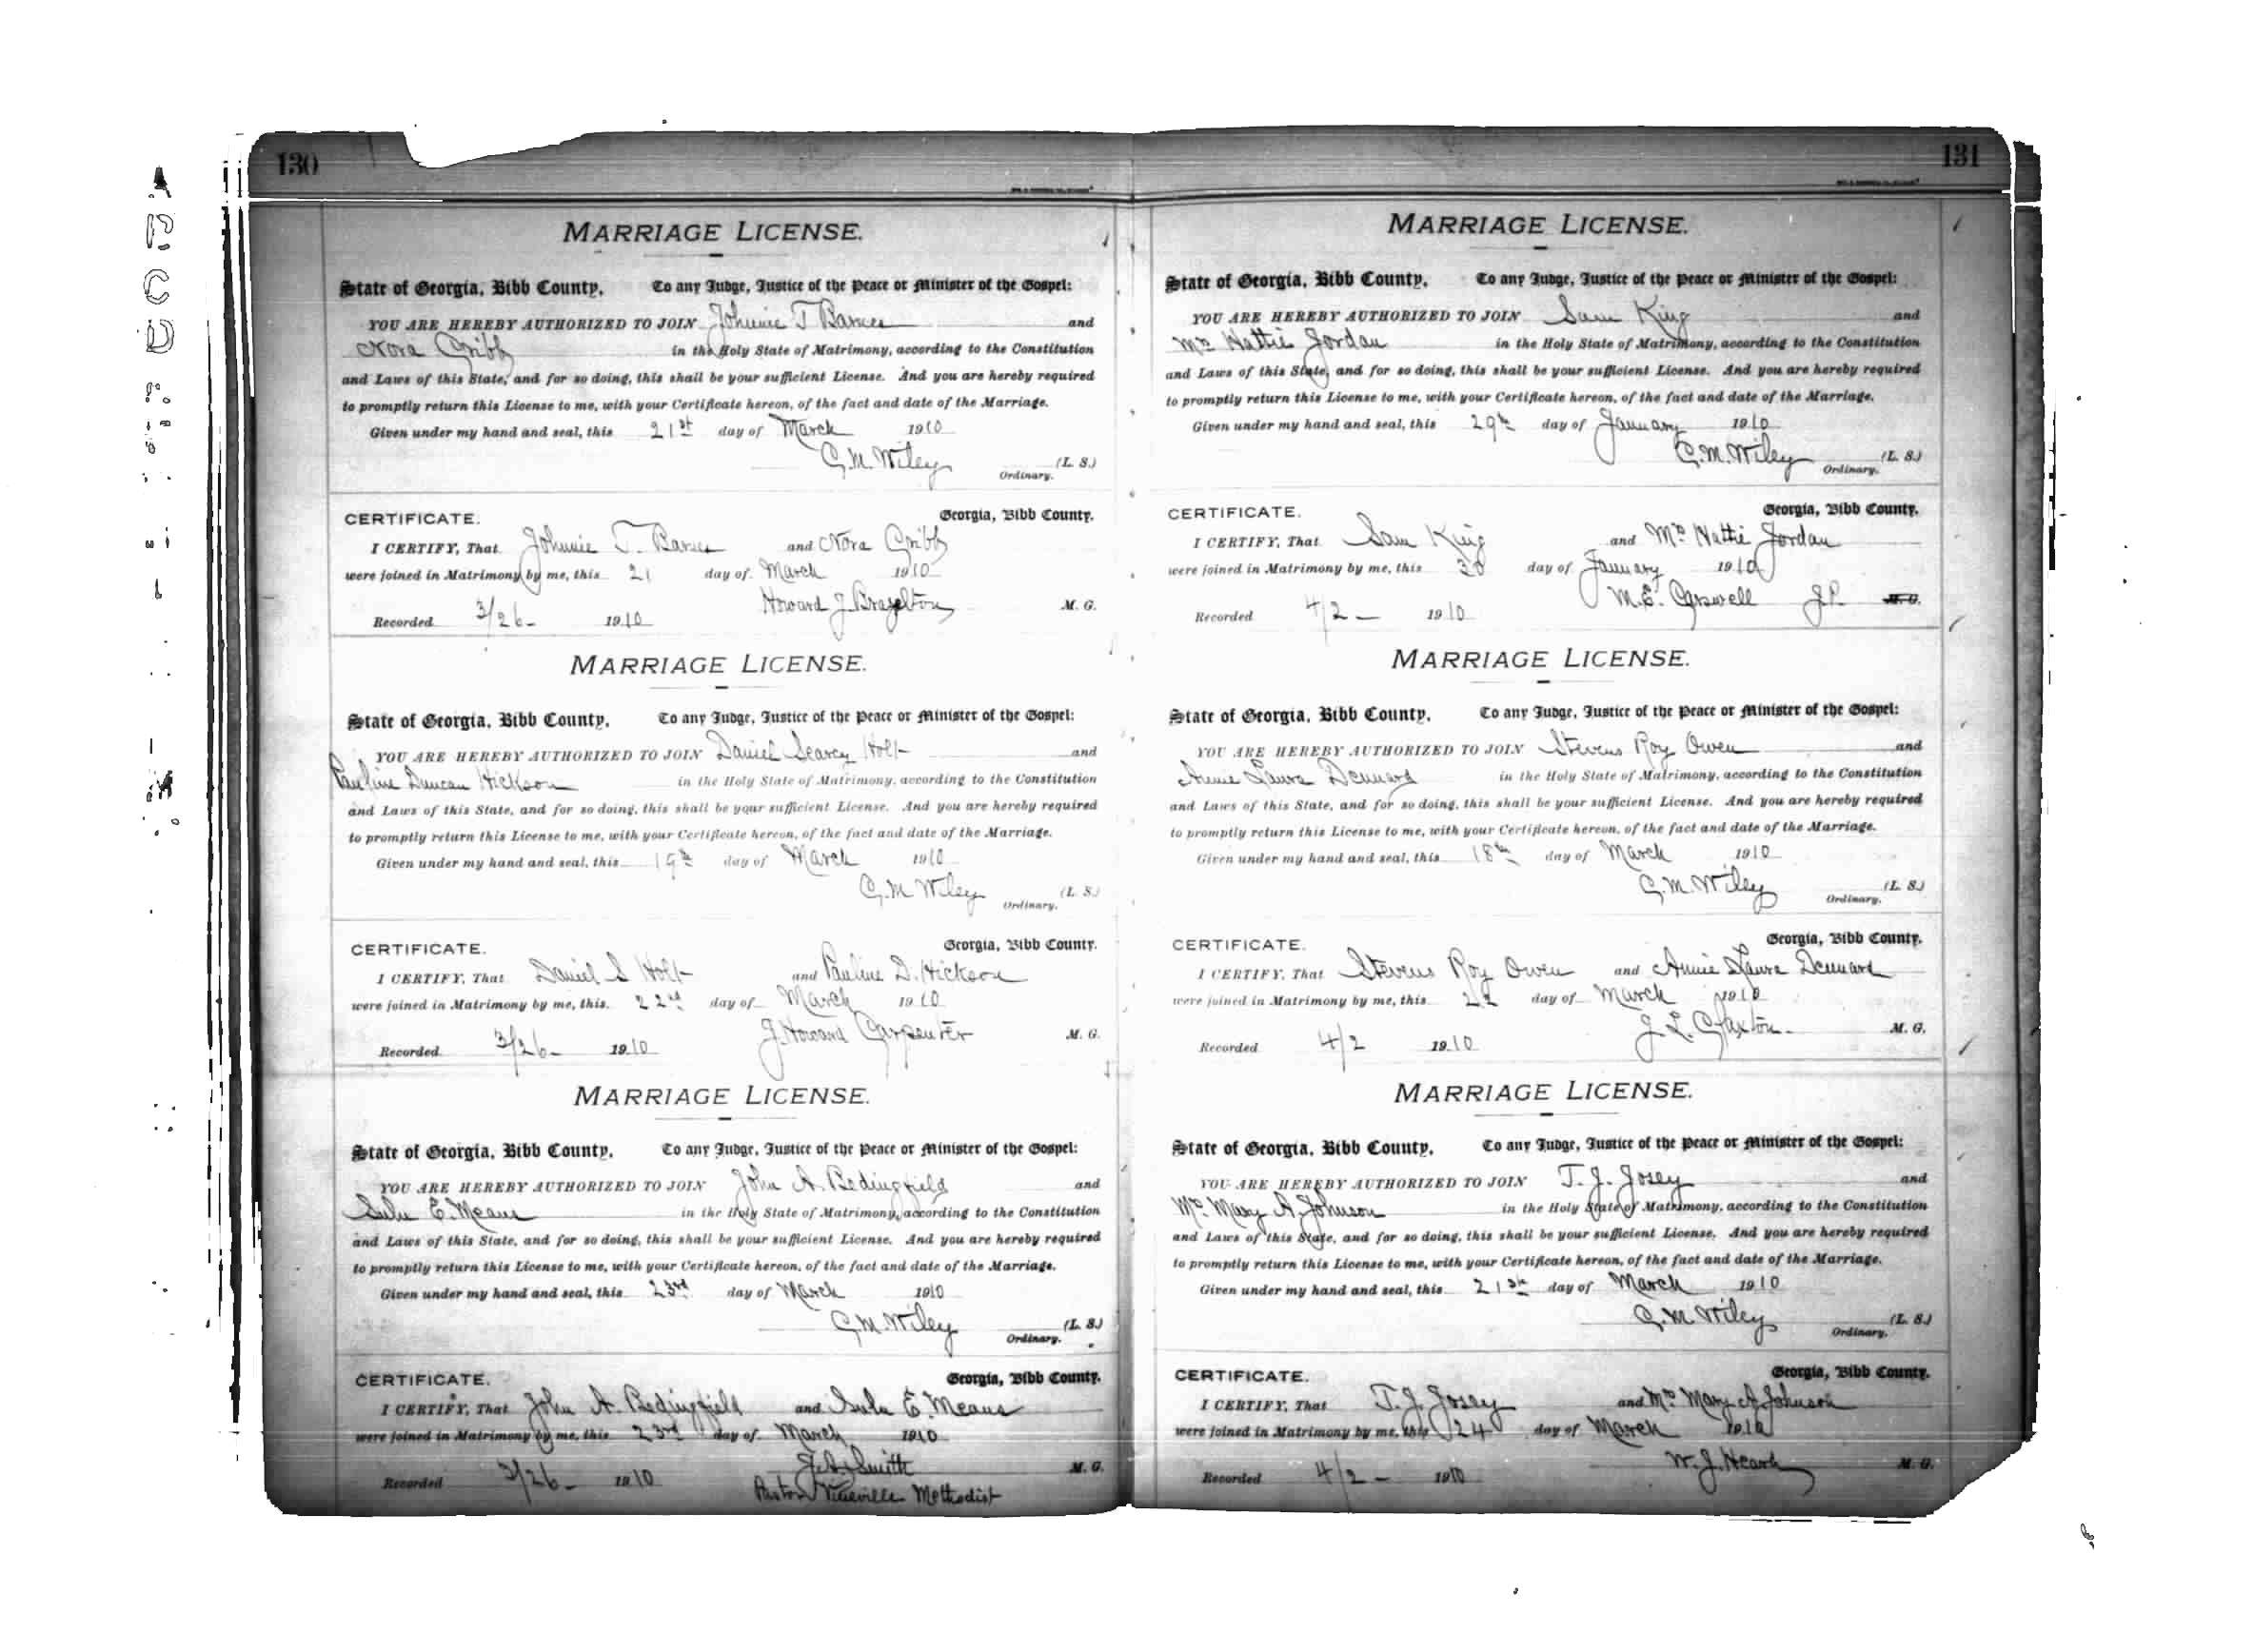 130
MARRIAGE LICENSE.
State of Georgia, Bibb County, To any Judge, Justice of the Peace or Minister of the Gospel:
YOU ARE HEREBY AUTHORIZED TO JOIN Johnnie T Barnes and
Nora Cribb in the Holy State of Matrimony, according to the Constitution
and Laws of this State, and for so doing, this shall be your sufficient License. And you are hereby required
to promptly return this License to me, with your Certificate hereon, of the fact and date of the Marriage.
Given under my hand and seal, this 21st day of March 1910
C.M. Wiley (L. S.)
Ordinary.
CERTIFICATE. Georgia, Bibb County.
I CERTIFY, That Johnnie T. Barnes and Nora Cribb
were joined in Matrimony by me, this 21 day of March 1910
Howard J. Brazelton M. G.
Recorded 3/26- 1910
MARRIAGE LICENSE.
State of Georgia, Bibb County, To any Judge, Justice of the Peace or Minister of the Gospel:
YOU ARE HEREBY AUTHORIZED TO JOIN Daniel Searcy Holt and
Pauline Duncan Hickson in the Holy State of Matrimony, according to the Constitution
and Laws of this State, and for so doing, this shall be your sufficient License. And you are hereby required
to promptly return this License to me, with your Certificate hereon, of the fact and date of the Marriage.
Given under my hand and seal, this 19th day of March 1910
C.M Wiley (L. S.)
Ordinary.
CERTIFICATE. Georgia, Bibb County.
I CERTIFY, That Daniel S Holt and Pauline D. Hickson
were joined in Matrimony by me, this 22nd day of March 1910
J. Howard Carpenter M. G.
Recorded 3/26- 1910
MARRIAGE LICENSE.
State of Georgia, Bibb County, To any Judge, Justice of the Peace or Minister of the Gospel:
YOU ARE HEREBY AUTHORIZED TO JOIN John A. Bedingfield and
Lula E. Means in the Holy State of Matrimony, according to the Constitution
and Laws of this State, and for so doing, this shall be your sufficient License. And you are hereby required
to promptly return this License to me, with your Certificate hereon, of the fact and date of the Marriage.
Given under my hand and seal, this 23rd day of March 1910
C.M. Wiley (L. S.)
Ordinary.
CERTIFICATE. Georgia, Bibb County.
I CERTIFY, That John A. Bedingfield and Lula E. Means
were joined in Matrimony by me, this 23rd day of March 1910
Smith M. G.
Recorded 3/26- 1910
Pastor Vineville Methodist
131
MARRIAGE LICENSE.
State of Georgia, Bibb County, To any Judge, Justice of the Peace or Minister of the Gospel:
YOU ARE HEREBY AUTHORIZED TO JOIN Sam King and
Mrs Hattie Jordan in the Holy State of Matrimony, according to the Constitution
and Laws of this State, and for so doing, this shall be your sufficient License. And you are hereby required
to promptly return this License to me, with your Certificate hereon, of the fact and date of the Marriage.
Given under my hand and seal, this 29th day of January 1910
C.M. Wiley (L. S.)
Ordinary.
CERTIFICATE. Georgia, Bibb County.
I CERTIFY, That Sam King and Mrs Hattie Jordan
were joined in Matrimony by me, this 30 day of January 1910
M.E. Carswell J.P. M. G.
Recorded 4/2- 1910
MARRIAGE LICENSE.
State of Georgia, Bibb County, To any Judge, Justice of the Peace or Minister of the Gospel:
YOU ARE HEREBY AUTHORIZED TO JOIN Stevens Roy Owen and
Annie Laura Dennard in the Holy State of Matrimony, according to the Constitution
and Laws of this State, and for so doing, this shall be your sufficient License. And you are hereby required
to promptly return this License to me, with your Certificate hereon, of the fact and date of the Marriage.
Given under my hand and seal, this 18th day of March 1910
C.M. Wiley (L. S.)
Ordinary.
CERTIFICATE. Georgia, Bibb County.
I CERTIFY, That Stevens Roy Owen and Annie Laura Dennard
were joined in Matrimony by me, this 22 day of March 1910
J. L. Claxton. M. G.
Recorded 4/2 1910
MARRIAGE LICENSE.
State of Georgia, Bibb County, To any Judge, Justice of the Peace or Minister of the Gospel:
YOU ARE HEREBY AUTHORIZED TO JOIN T. J. Josey and
Mrs Mary A. Johnson in the Holy State of Matrimony, according to the Constitution
and Laws of this State, and for so doing, this shall be your sufficient License. And you are hereby required
to promptly return this License to me, with your Certificate hereon, of the fact and date of the Marriage.
Given under my hand and seal, this 21st day of March 1910
C.M. Wiley (L. S.)
Ordinary.
CERTIFICATE. Georgia, Bibb County.
I CERTIFY, That T. J. Josey and Mrs Mary A Johnson
were joined in Matrimony by me, this 24 day of March 1910
W. J. M. G.
Recorded 4/2- 1910